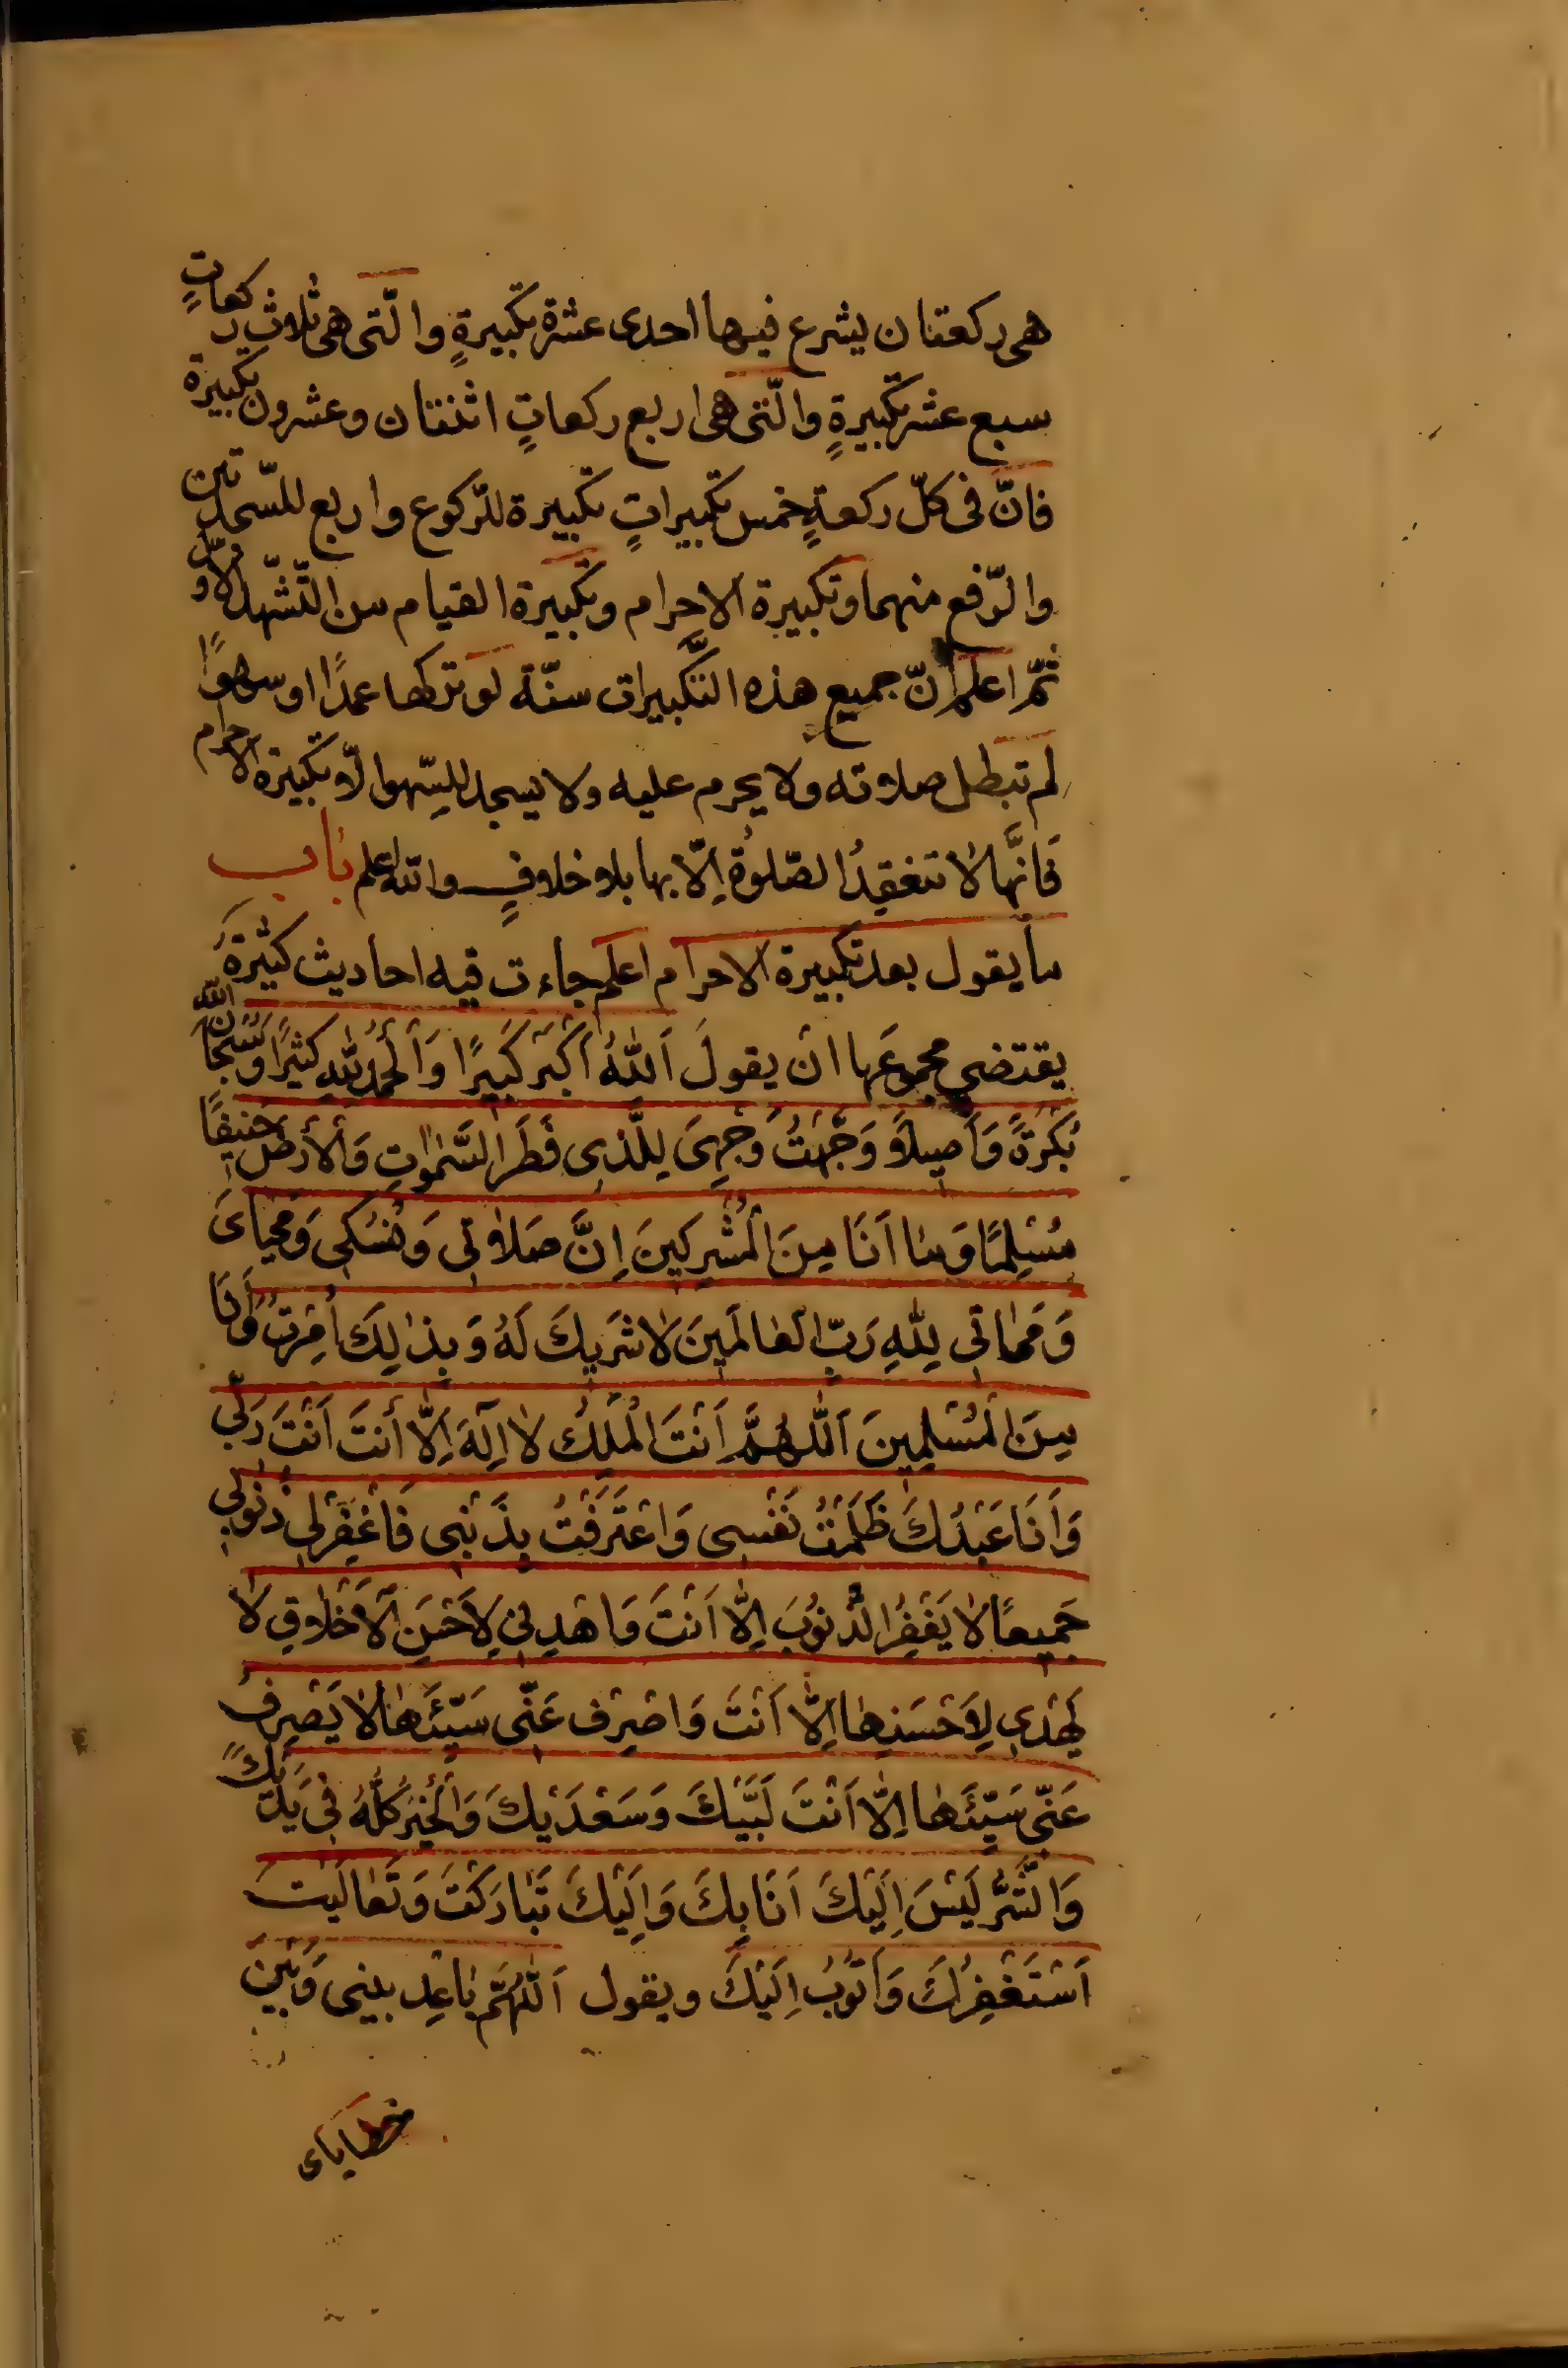 هى ركعتان يشرع فيها احدى عشرة تكبيرةٍ والّتى هى ثلاث ركعاتٍ
سبع عشر تكبيرةٍ والّتى هى اربع ركعاتٍ اثنتان وعشرون تكبيرة
فانّ فى كلّ ركعةٍ خمس تكبيراتٍ تكبيرة للرّكوع واربع للسّجدتين
والرّفع منهما وتكبيرة الاحرام وتكبيرة القيام من التّشهّد الاوّل
ثمّ اعلم انّ جميع هذه التّكبيرات سنّة لو تركها عمدًا او سهوًا
لم تبطل صلاته ولا يحرم عليه ولا يسجد للسّهو الّا تكبيرة الاحرام
فَانَّها لا تنعقِدُ الصّلوٰة اِلّا بها بلا خلافٍ والله اعلم باب
ما يقول بعد تكبيرة الاحرام اعلم جاءت فيه احاديث كثيْرَةُ
يقتضي مجموعَها انْ يقولَ اَللّٰهُ اَكْبَر كَبِيرًا وَاَلْحَمْدُ لِلّٰهِ كثيْرًا وَسُبْحَانَ اللّٰه
بُكْرَةً وَاَصِيلاً وَجَّهْتُ وَجْهِىَ لِلَّذى فَطَرَ السَّمٰوٰاتِ وَالْأَرْضَ حَنيفًا
مُسْلِمًا وَمٰا اَنَا مِنَ الْمُشْرِكينَ اِنَّ صَلاٰتى وَنُسُكى وَمَحْيٰاىَ
وَمَمٰاتى لِلّٰهِ رَبِّ الْعٰالَمينَ لاٰ شَريكَ لَهُ وَبِذٰلِكَ اُمِرْتُ وَأَنَا
مِنَ الْمُسْلِمِينَ اَللّٰهُمَّ اَنْتَ الْمَلِكُ لاٰ اِلٰهَ اِلّٰا أنتَ اَنْتَ رَبّى
وَاَنَا عَبْدُكَ ظَلَمْتُ نَفْسى وَاعْتَرَفْتُ بِذَنْبى فَاغْفِرْلى ذُنُوبى
جَميعًا لاٰ يَغْفِرُ الذُّنُوبَ اِلّٰا اَنْتَ وَاهْدِنى لِاَحْسَنِ اَلْاَخْلاٰقِ لاٰ
يَهْدى لِاَحْسَنِهٰا اِلّٰا اَنْتَ وَاصْرِف عَنّى سَيِّئَهٰا لاٰ يَصْرِفُ
عَنّى سَيِّئَهٰا اِلّٰا اَنْتَ لَبَّيْكَ وَسَعْدَيْكَ وَالْخَيْرُ كُلُّهُ فى يَدَيْكَ
وَالشَّرُّ لَيْسَ اِلَيْكَ اَنَا بِكَ وَاِلَيْكَ تَبٰارَكْتَ وَتَعٰالَيْتَ
اَسْتَغْفِرُكَ وَاَتُوبُ اِلَيْكَ ويقول اَللّٰهُمَّ بٰاعِد بينى وَبَيْنَ
خطاياى